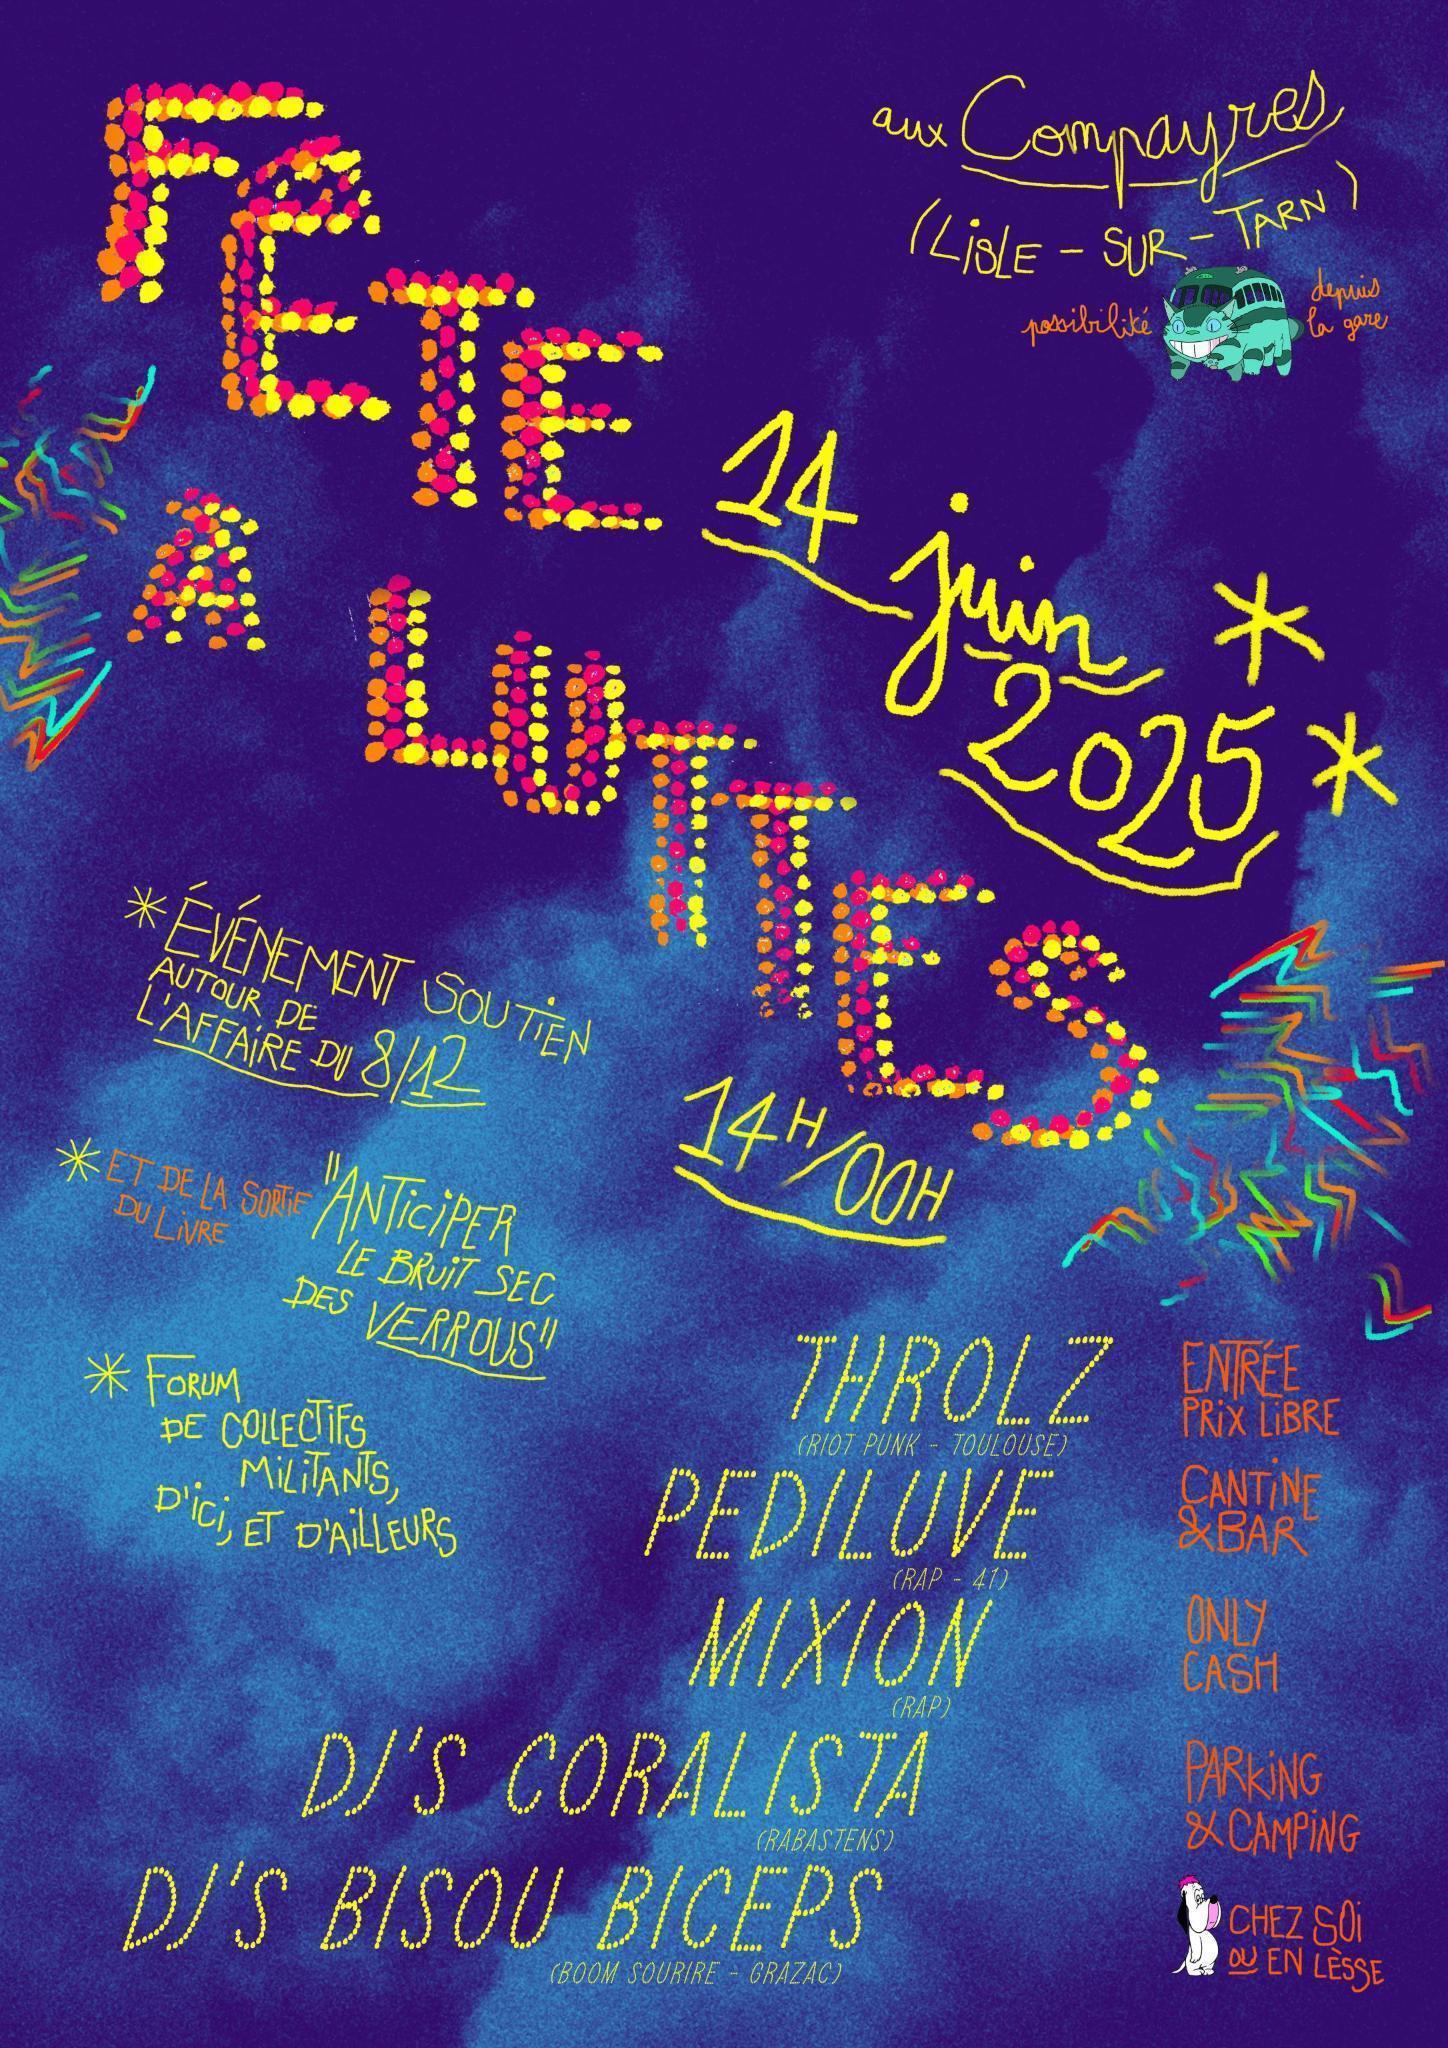 FÊTE
A LUTTES
aux Compayres
(LiSLE - SUR - TARN)
possibilité
depuis
la gare
14 juin
2025
* ÉVÉNEMENT SOUTiEN
AUTOUR DE
L'AFFAiRE DU 8/12
14H/00H
* ET DE LA SORTiE
DU LiVRE
"ANTiCiPER
LE BRUiT SEC
DES VERROUS"
* FORUM
DE COLLECTiFS
MiLiTANTS,
D'iCi, ET D'AiLLEURS
THROLZ
(RIOT PUNK - TOULOUSE)
PEDILUVE
(RAP - 41)
MIXION
(RAP)
DJ'S CORALISTA
(RABASTENS)
DJ'S BISOU BICEPS
(BOOM SOURIRE - GRAZAC)
ENTRÉE
PRiX LiBRE
CANTiNE
&BAR
ONLY
CASH
PARKiNG
& CAMPiNG
CHEZ SOi
OU EN LÈSSE